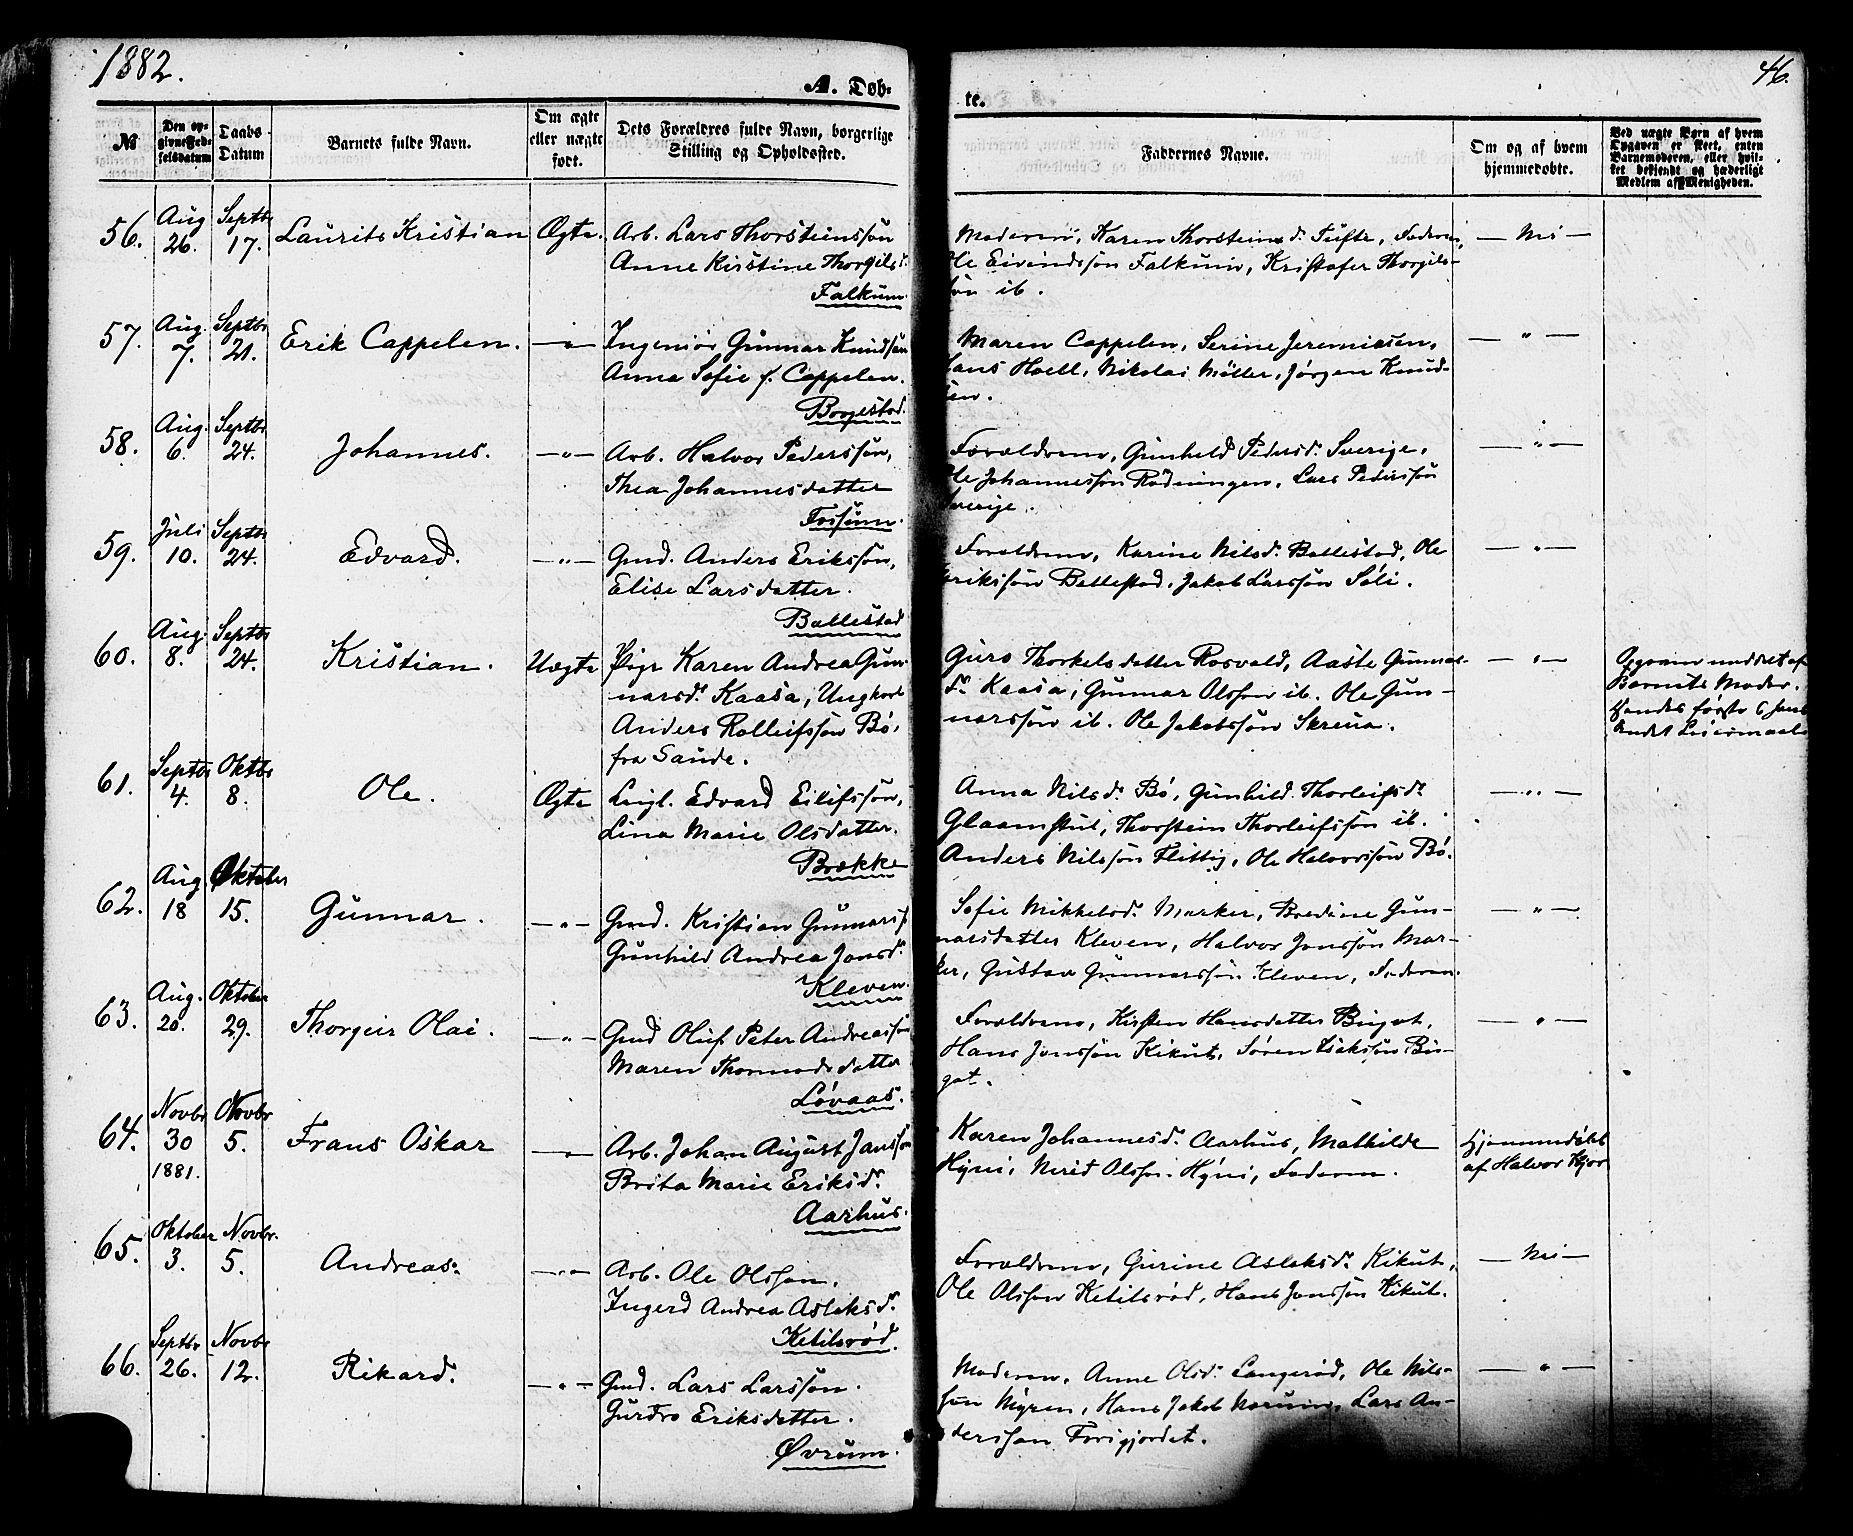 1882.
A. Døb-
te.
46.
№
Den op-
givne Fød-
selsdatum
Daabs-
Datum
Barnets fulde Navn.
Om ægte
eller uægte
født.
Dets Forældres fulde Navn, borgerlige
Stilling og Opholdssted.
Faddernes Navne.
Om og af hvem
hjemmedøbte.
Ved uægte Børn af hvem
Opgaven er skeet, enten
Barnemoderen, eller hvil-
ket bekjendt og hæderligt
Medlem af Menigheden.
56.
Aug
26.
Septbr
17.
Laurits Kristian
Ægte.
Arb. Lars Thorsteinssøn
Anne Kirstine Thorgilsd.
Falkum.
Moderen, Karen Thorsteinsd. Tufte, Faderen,
Ole Eivindssøn Falkum, Kristofer Thorgils-
søn ib.
— Nei —
57.
Aug.
7.
Septbr
21.
Erik Cappelen.
— " —
Ingeniør Gunnar Knudsen
Anna Sofie f. Cappelen.
Borgestad.
Maren Cappelen, Serine Jeremiasen,
Hans Hoell, Nikolai Møller, Jørgen Knud-
sen.
— " —
58.
Aug.
6.
Septbr
24.
Johannes.
— " —
Arb. Halvor Pederssøn,
Thea Johannesdatter
Fossum.
Forældrene, Gunhild Pedersd. Sverige,
Ole Johannessøn Rødningen, Lars Pederssøn
Sverige.
— " —
59.
Juli
10.
Septbr
24.
Edvard.
— " —
Gmd. Anders Erikssøn,
Elise Larsdatter.
Ballestad
Forældrene, Karine Nilsd. Ballestad, Ole
Erikssøn Ballestad, Jakob Larssøn Søli.
— " —
60.
Aug.
8.
Septbr
24.
Kristian.
Uægte
Pige Karen Andrea Gun-
narsd. Kaasa, Ungkarl
Anders Rolleifssøn Bø,
fra Saude.
Guro Thorkelsdatter Rosvald, Aaste Gunnars-
d. Kaasa, Gunnar Olssøn ib. Ole Gun-
narssøn ib. Ole Jakobssøn Skrena.
— " —
Opgaven meddelt af
Barnets Moder.
Hendes første
andet Leiermaal.
61.
Septbr
4.
Oktbr
8.
Ole.
Ægte
Leigl. Edvard Eilifssøn,
Lina Marie Olsdatter.
Brække
Anna Nilsd. Bø, Gunhild Thorleifsd.
Glaamstul, Thorstein Thorleifssøn ib.
Anders Nilssøn Flittig, Ole Halvorssøn Bø.
— " —
62.
Aug
18
Oktober
15.
Gunnar.
— " —
Gmd. Kristian Gunnarss.
Gunhild Andrea Jonsd.
Kleven.
Sofie Mikkelsd. Marker, Bredine Gun-
narsdatter Kleven, Halvor Jonssøn Mar-
ker, Gustav Gunnarssøn Kleven, Faderen.
— " —
63.
Aug.
20.
Oktober
29.
Thorgeir Olai.
— " —
Gmd Oluf Peter Andreassøn
Maren Thormodsdatter
Løvaas.
Forældrene, Kirsten Hansdatter Bugot,
Hans Jonssøn Kikut, Søren Isakssøn Bu-
got.
— " —
64.
Novbr
30
1881.
Novbr
5.
Frans Oskar
— " —
Arb. Johan August Janssøn
Brita Marie Eriksd.
Aarhus.
Karen Johannesd. Aarhus, Mathilde
Hyni, Nerid Olssøn Hyni, Faderen.
Hjemmedøbt
af Halvor Kjør
65.
Oktober
3.
Novbr.
5.
Andreas.
— " —
Arb. Ole Olssøn,
Ingerd Andrea Aslaksd.
Ketilsrød.
Forældrene, Gurine Aslaksd. Kikut,
Ole Olssøn Ketilsrød, Hans Jonssøn Kikut.
— Nei —
66.
Septbr
26.
Novbr
12.
Rikard.
— " —
Gmd. Lars Larssøn.
Gurdro Eriksdatter.
Øvrum.
Moderen, Anne Olsd. Langerød, Ole Nils-
søn Myren, Hans Jakob Norum, Lars An-
derssøn Forigjordet.
— " —